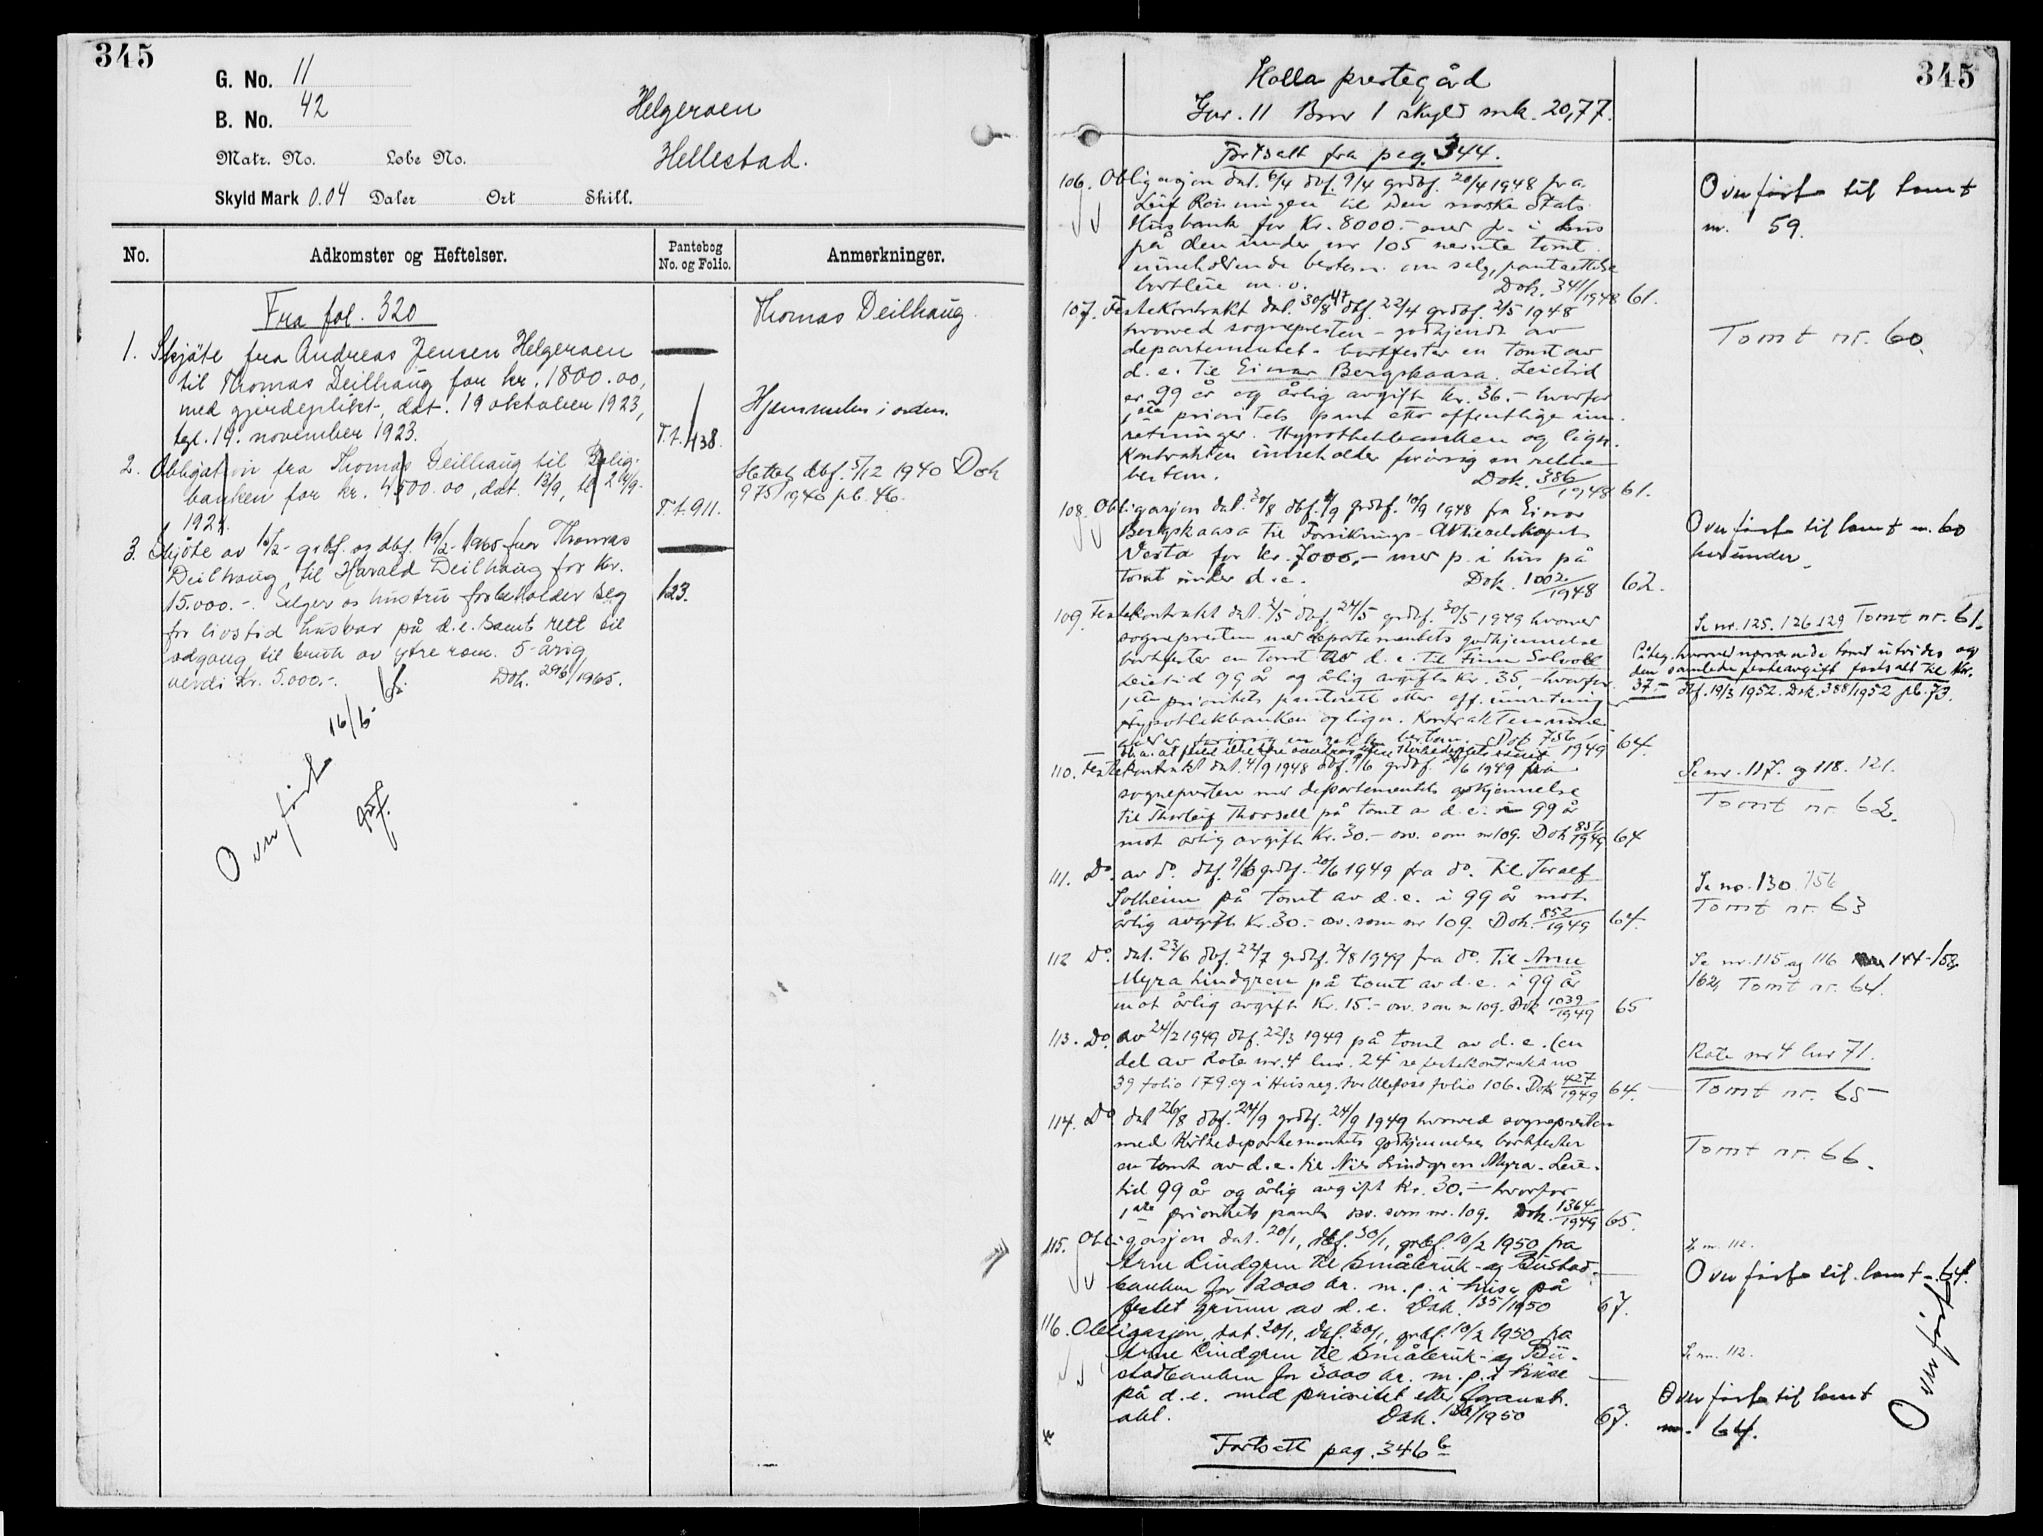 345
G. No. 11
B. No. 42
Helgeroen
Hellestad.
Matr. No. Løbe No.
Skyld Mark 0.04 Daler Ort Skill.
No. Adkomster og Heftelser. Pantebog No. og Folio. Anmerkninger.
Fra fol. 320
Thomas Deilhaug
1. Skjöte fra Andreas Jensen Helgeroen
til Thomas Deilhaug for kr. 1800.00,
med gjerdeplikt, dat. 19 oktober 1923,
tgl. 19. november 1923.
T.t. 438.
Hjemmelen i orden.
2. Obligation fra Thomas Deilhaug til Bolig-
banken for kr. 4500.00, dat. 13/9,
192
T.t. 911.
Slettet dbf. 5/12 1940 Dok
975/1940 pb. 46.
3. Skjöte av 16/2 - grbf. og dbf. 19/2 - 1965 fra Thomas
Deilhaug, til Harald Deilhaug for kr.
15.000.-. Selger os hustru forbeholder seg
for livstid husvær på d.e. samt rett til
adgang til bruk av ytre rom. 5-årig
verdi kr. 5.000.-. Dok. 296/1965.
123.
Overført 16/6-
345
Holla prestegård
Gnr. 11 Bnr 1 skyld mk. 20,77.
Fortsatt fra pag. 344.
106. Obligasjon dat. 6/4 dbf. 9/4 grdbf. 20/4 1948 fra
Leif Rønningen til Den norske Stats
Husbank for Kr. 8000.- med p. i hus
på den under nr 105 nevnte tomt.
inneholdende bestem. om salg, pantsettelse
bortleie m.v. Dok. 341/1948 61.
Overført til tomt
nr. 59.
107. Festekontrakt dat. 30/8 47 dbf. 22/4 grdbf. 2/5 1948
hvorved sognepresten - godkjendt av
departementet - bortfester en tomt av
d.e. til Einar Bergskaasa. Leietid
er 99 år og årlig avgift kr. 36.- hvorfor
1ste prioritets pant etter offentlige inn-
retninger. Hypothekbanken og lign.
Kontrakten inneholder forøvrig en rekke
bestem. Dok. 386/1948 61.
Tomt nr. 60.
108. Obligasjon dat. 30/8 dbf. 4/9 grdbf. 10/9 1948 fra Einar
Bergskaasa til Forsikrings-Aktieselskapet
Vesta for kr. 7000,- med p. i hus på
tomt under d.e. Dok. 1002/1948 62.
Overført til tomt nr. 60
herunder.
109. Festekontrakt dat. 4/5 dbf. 24/5 grdbf. 30/5 1949 hvorved
sognepresten med departementets godkjennelse
bortfester en tomt av d.e. til Finn Solvoll
Leietid 99 år og årlig avgift kr. 35,- hvorfor
1ste prioritets panterett etter off. innretning
Hypothekbanken og lign. Kontrakten inne-
holder forøvrig en rekke bestem. Dok 756/1949 64.
Se nr. 125. 126 129 Tomt nr. 61.
Påteg. hvorved nærværende tomt utvides og
den samlede festeavgift fastsatt til kr.
37.- dbf. 19/3 1952. Dok. 388/1952 pb. 73.
110. Festekontrakt dat. 4/9 1948 dbf. 9/6 grdbf. 20/6 1949 fra
sognepresten med departementets godkjennelse
til Thorleif Thorsell på tomt av d.e. i 99 år
mot årlig avgift kr. 30.- osv. som nr 109. Dok 851/1949 64
Se nr. 117. og 118. 121.
Tomt nr. 62.
111. Do. av do. dbf. 9/6 grdbf. 20/6 1949 fra do. til Toralf
Solheim på tomt av d.e. i 99 år mot
årlig avgift kr. 30.- osv. som nr 109. Dok. 852/1949 64.
Se no. 130. 156
Tomt nr. 63
112 Do. dat. 23/6 dbf. 22/7 grdbf. 2/8 1949 fra do. til Arne
Myra Lindgren på tomt av d.e. i 99 år
mot årlig avgift kr. 15.- osv. som nr 109. Dok 1039/1949 65
Se nr. 115 og 116 144-158
162, Tomt nr. 64.
113. Do. av 24/2 1949 dbf. 22/3 1949 på tomt av d.e. (en
del av Rote nr. 4 lnr. 24 se festekontrakt no
39 folio 179 og i Husreg. for Ulefoss folio 106. Dok 427/1949 64.
Rote nr 4 lnr 71.
Tomt nr. 65
114. Do dat 26/8 dbf. 24/9 grdbf. 24/9 1949 hvorved sognepresten
med Kirkedepartementets godkjennelse bortfester
en tomt av d.e. til Nils Lindgren Myra. Leie-
tid 99 år og årlig avgift kr. 30.- hvorfor
1ste prioritets pant osv. som nr. 109. Dok. 1364/1949 65.
Tomt nr. 66.
115. Obligasjon dat. 20/1, dbf. 30/1, grbf. 10/2 1950 fra
Arne Lindgren til Småbruk- og Bustad-
banken for 12000 kr. m. p. i huse på
festet grunn av d.e. Dok. 135/1950 67.
Se nr. 112.
Overført til tomt - 64.
116. Obligasjon, dat. 20/1, dbf. 30/1, grbf. 10/2 1950 fra
Arne Lindgren til Småbruk- og Bu-
stadbanken for 3000 kr. m. p. i huse
på d.e. med prioritet etter foranst.
obl. Dok. 136/1950 67.
Se nr. 112.
Overført til tomt
nr. 64.
Overført
Fortsatt pag. 346 b